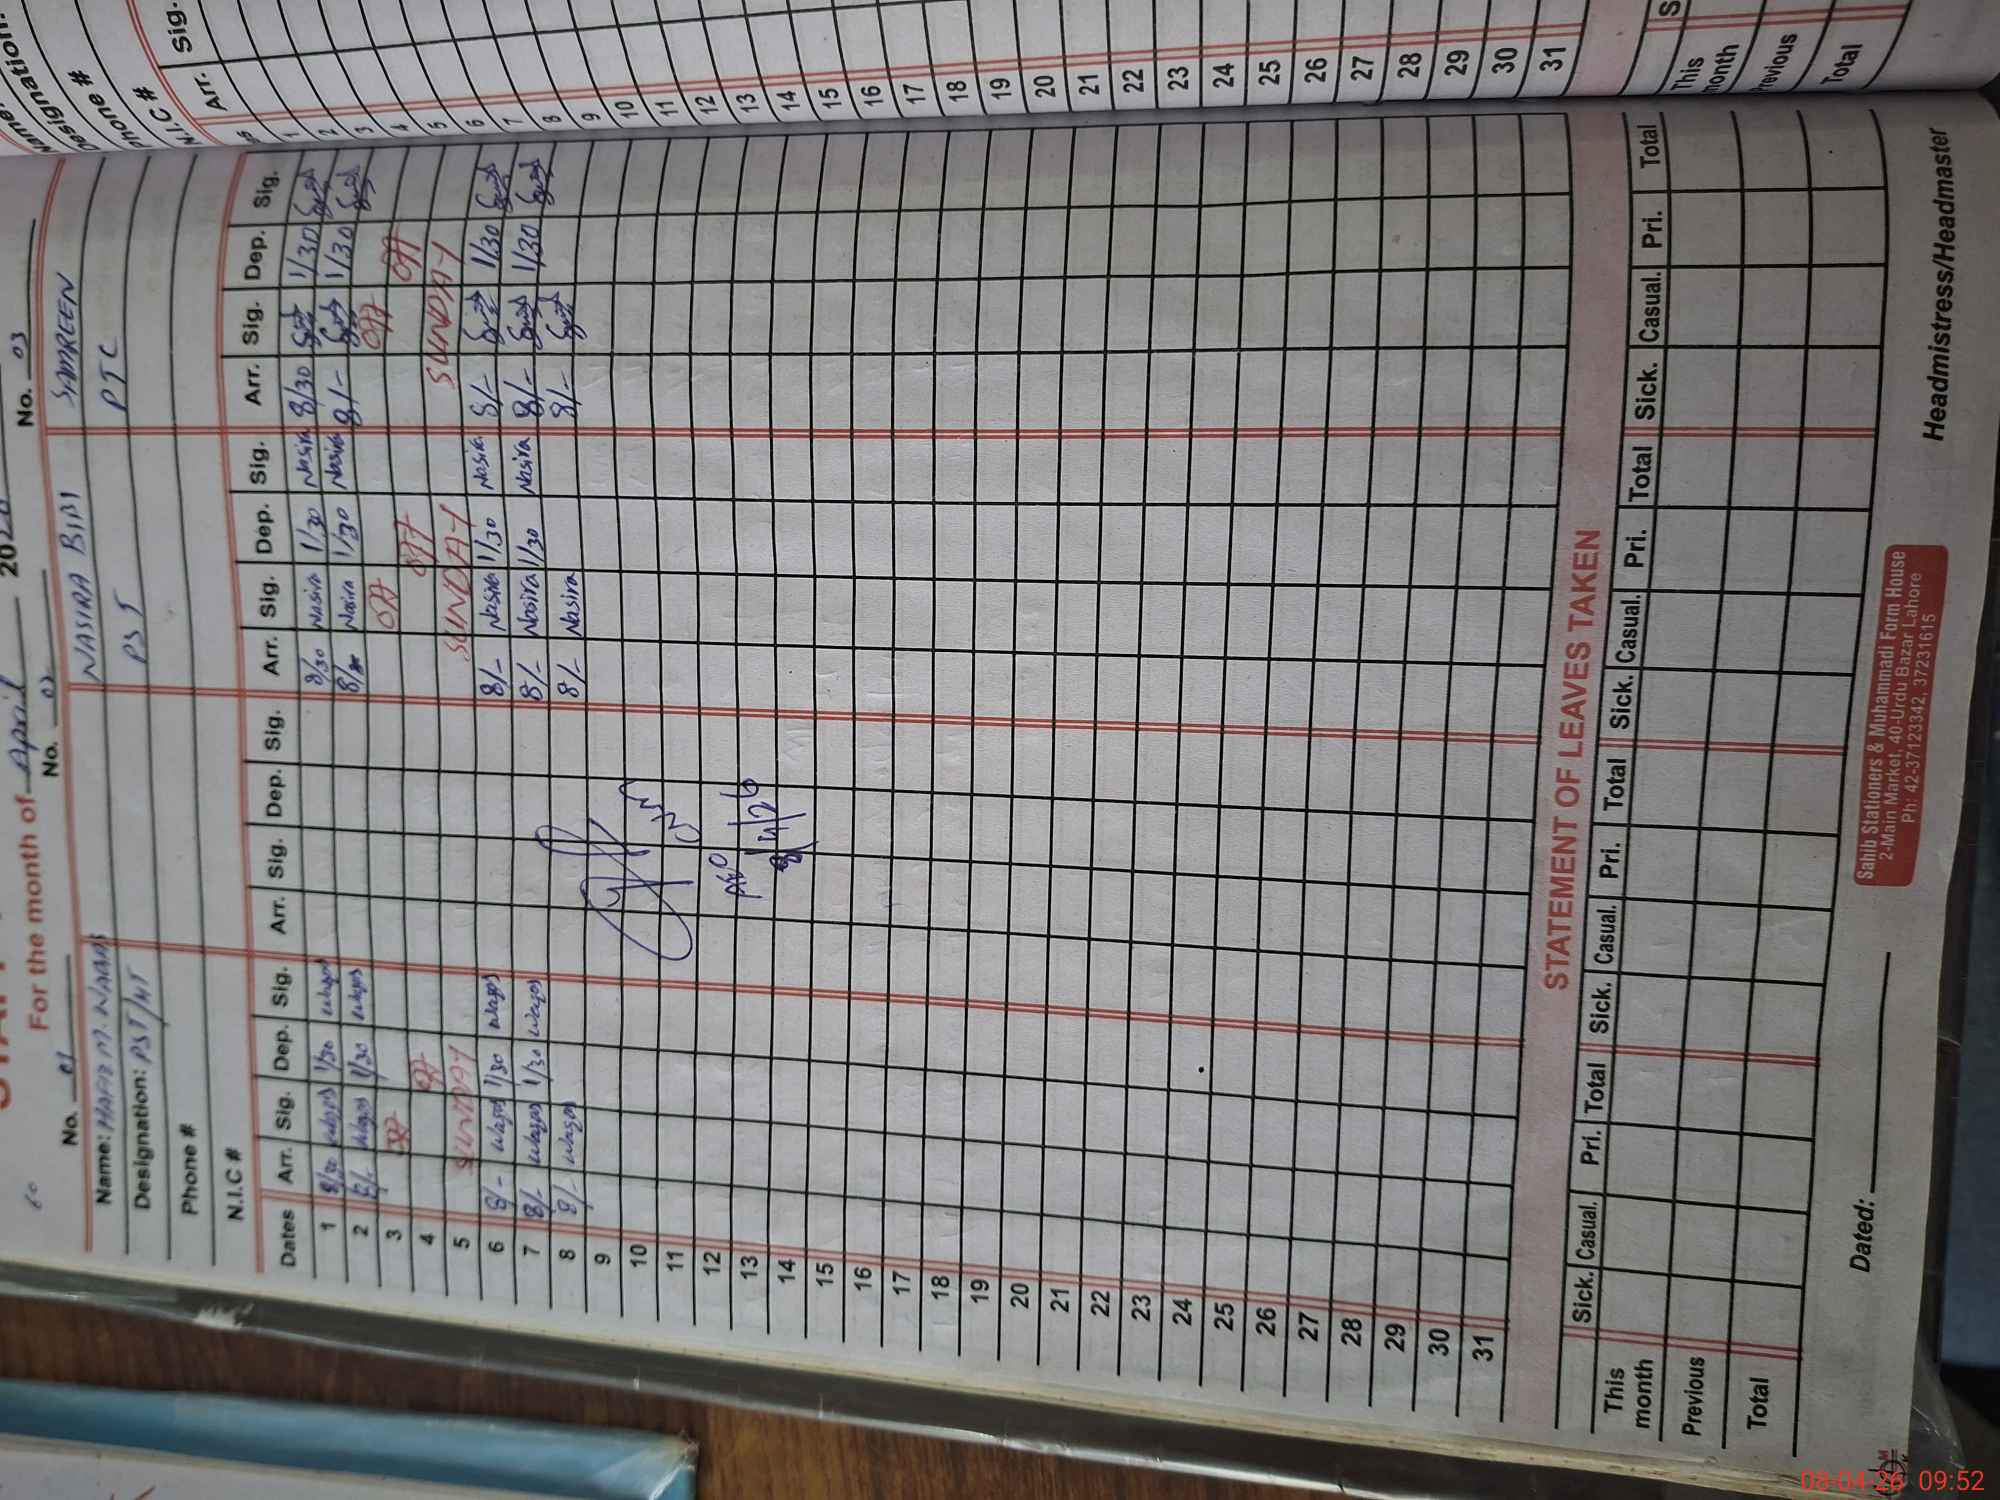 For the month of April 202
No. 01 No. 02 No. 03
Name: HAFIZ M. WAQAS NASIRA BIBI SAMREEN
Designation: PST/HT PST PTC
Phone #
N.I.C #
Dates Arr. Sig. Dep. Sig. Arr. Sig. Dep. Sig. Arr. Sig. Dep. Sig. Arr. Sig. Dep. Sig.
1 8/30 Waqas 1/30 Waqas 8/30 Nasira 1/30 Nasira 8/30 1/30
2 8/- Waqas 1/30 Waqas 8/ Nasira 1/30 Nasira 8/- 1/30
3 Off Off Off
4 Off Off Off
5 SUNDAY SUNDAY SUNDAY
6 8/- Waqas 1/30 Waqas 8/- Nasira 1/30 Nasira 8/- 1/30
7 8/- Waqas 1/30 Waqas 8/- Nasira 1/30 Nasira 8/- 1/30
8 8/- Waqas 8/- Nasira 8/-
9
10
11
12
13
14 8/4/26
15
16
17
18
19
20
21
22
23
24
25
26
27
28
29
30
31
STATEMENT OF LEAVES TAKEN
Sick. Casual. Pri. Total Sick. Casual. Pri. Total Sick. Casual. Pri. Total Sick. Casual. Pri. Total
This month
Previous
Total
Dated:
Sahib Stationers & Muhammadi Form House
2-Main Market, 40-Urdu Bazar Lahore
Ph: 42-37123342, 37231615
Headmistress/Headmaster
Name:
Designation:
Phone #
N.I.C #
Arr. Sig.
1
2
3
4
5
6
7
8
9
10
11
12
13
14
15
16
17
18
19
20
21
22
23
24
25
26
27
28
29
30
31
This month
Previous
Total
08-04-26 09:52